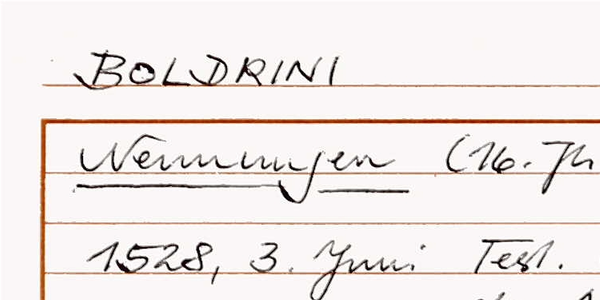 BOLDRINI
Nennungen (16. Jh
1528, 3. Juni Test.